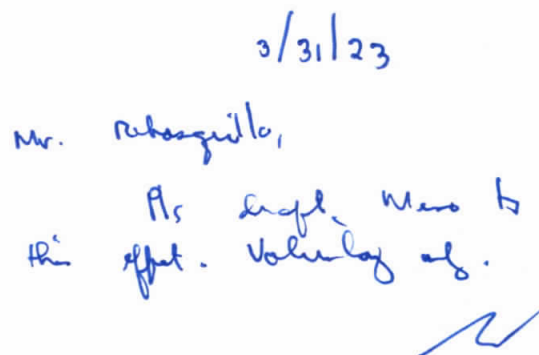 3/31/23
Mr. Rebosquillo,
Pls draft. Memo to
this effect. Voluntary only.